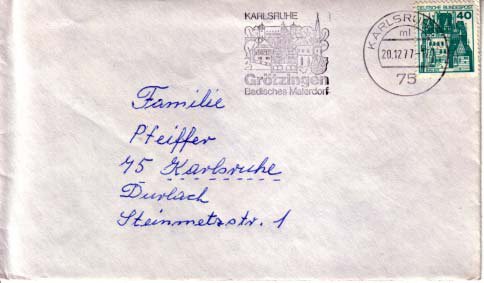 KARLSRUHE
Grötzingen
Badisches Malerdorf
KARLSRUHE
ml
20.12.77
75
DEUTSCHE BUNDESPOST
40
Familie
Pfeiffer
75 Karlsruhe
Durlach
Steinmetzstr. 1